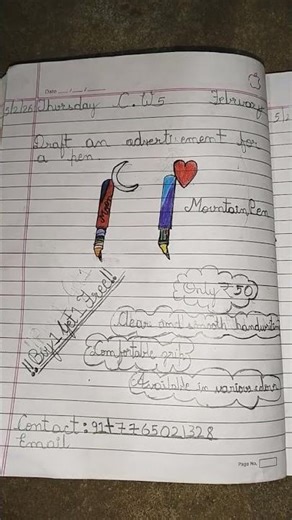 Date
5/2/26 Thursday C.W5 February
Draft an advertisement for
a pen.
Mountain Pen
Only ₹50
!!Buy 1 Get 1 Free!!
Clear and smooth handwriting
Comfortable grib
Available in various colour
Contact: 91+7765021328
Email
Page No.